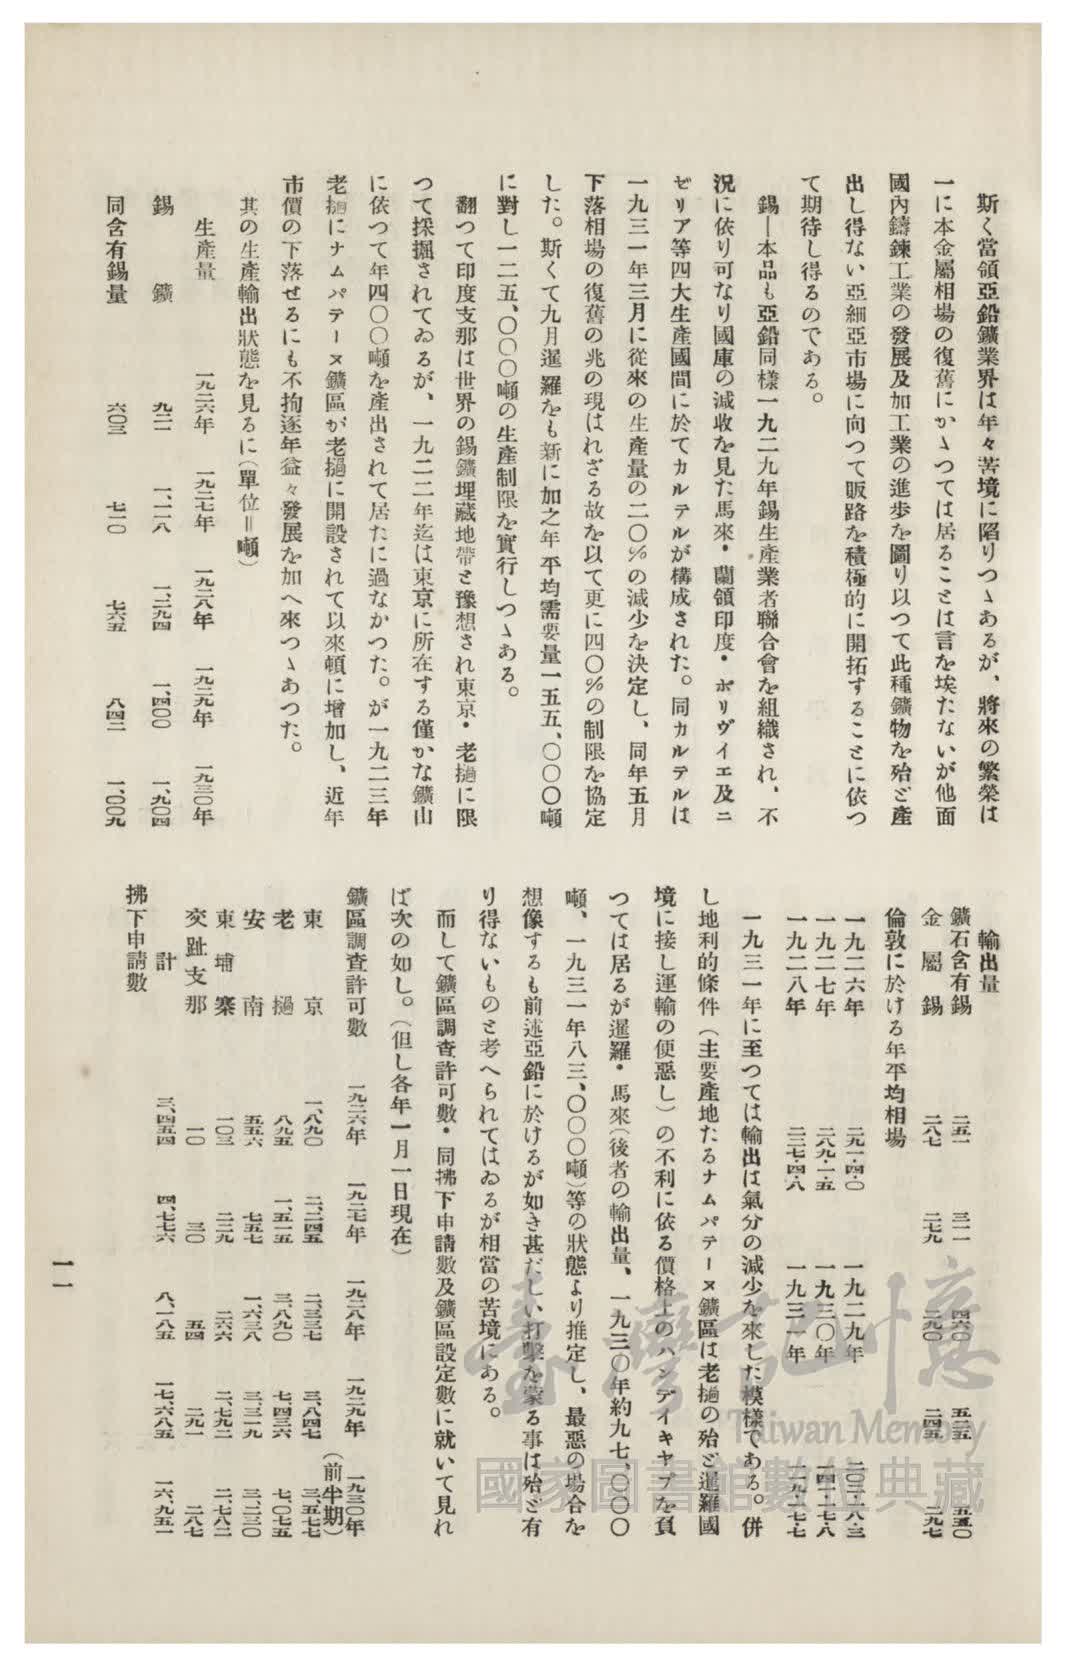 斯く當領亞鉛鑛業界は年々苦境に陷りつゝあるが、將來の繁榮は
一に本金屬相場の復舊にかゝつては居ることは言を埃たないが他面
國內鑄鍊工業の發展及加工業の進步を圖り以つて此種鑛物を殆ど產
出し得ない亞細亞市場に向つて販路を積極的に開拓することに依つ
て期待し得るのである。
錫―本品も亞鉛同樣一九二九年錫生產業者聯合會を組織され、不
況に依り可なり國庫の減收を見た馬來・蘭領印度・ボリヴイエ及ニ
ゼリア等四大生產國間に於てカルテルが構成された。同カルテルは
一九三一年三月に從來の生產量の二〇％の減少を決定し、同年五月
下落相場の復舊の兆の現はれざる故を以て更に四〇％の制限を協定
した。斯くて九月暹羅をも新に加之年平均需要量一五五、〇〇〇噸
に對し一二五、〇〇〇噸の生產制限を實行しつゝある。
翻つて印度支那は世界の錫鑛埋藏地帶と豫想され東京・老撾に限
つて採掘されてゐるが、一九二二年迄は東京に所在する僅かな鑛山
に依つて年四〇〇噸を產出されて居たに過なかつた。が一九二三年
老撾にナムパテーヌ鑛區が老撾に開設されて以來頓に增加し、近年
市價の下落せるにも不拘逐年益々發展を加へ來つゝあつた。
其の生產輸出狀態を見るに（單位＝噸）
生產量 一九二六年 一九二七年 一九二八年 一九二九年 一九三〇年
錫鑛 九二一 一、一一八 一、二九四 一、四〇〇 一、九〇四
同含有錫量 六〇三 七一〇 七六五 八四二 一、〇〇九
輸出量
鑛石含有錫 二五一 三一一 四六〇 五三五 五五〇
金屬錫 二八七 二七九 二九〇 二四五 二九七
倫敦に於ける年平均相場
一九二六年 二九一・四・〇 一九二九年 二〇三・八・三
一九二七年 二八九・一・五 一九三〇年 一四一・七・八
一九二八年 二三七・四・八 一九三一年 一一九・七・七
一九三一年に至つては輸出は氣分の減少を來した模樣である。併
し地利的條件（主要產地たるナムパテーヌ鑛區は老撾の殆ど暹羅國
境に接し運輸の便惡し）の不利に依る價格上のハンデイキヤプを負
つては居るが暹羅・馬來（後者の輸出量、一九三〇年約九七、〇〇〇
噸、一九三一年八三、〇〇〇噸）等の狀態より推定し、最惡の場合を
想像するも前述亞鉛に於けるが如き甚だしい打擊を蒙る事は殆ど有
り得ないものと考へられてはゐるが相當の苦境にある。
而して鑛區調查許可數・同拂下申請數及鑛區設定數に就いて見れ
ば次の如し。（但し各年一月一日現在）
鑛區調查許可數 一九二六年 一九二七年 一九二八年 一九二九年 一九三〇年
（前半期）
東京 一、八九〇 二、二四五 二、三三七 三、八四七 三、五七七
老撾 八九五 一、五一五 三、八九〇 七、四三六 七、〇七五
安南 五五六 七五七 一、六三八 三、三一九 三、二三〇
東埔寨 一〇三 二二九 二六六 二、七九二 二、七八二
交趾支那 一〇 三〇 五四 二九一 二八七
計 三、四五四 四、七七六 八、一八五 一七、六八五 一六、九五一
拂下申請數
一一
臺灣記憶
Taiwan Memory
國家圖書館數位典藏